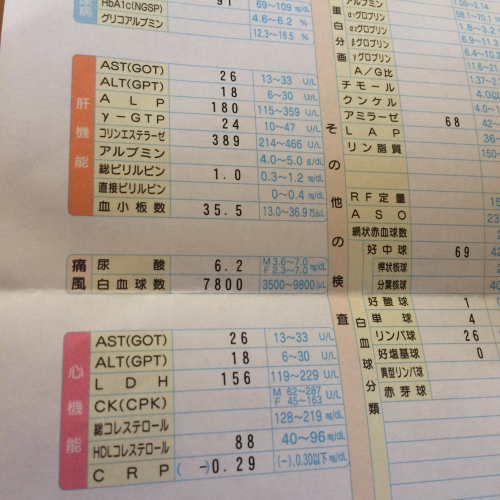 HbA1c(NGSP) 91 69～109 mg/dL
グリコアルブミン 4.6～6.2 %
12.3～16.5 %
肝機能
AST(GOT) 26 13～33 U/L
ALT(GPT) 18 6～30 U/L
ALP 180 115～359 U/L
γ-GTP 24 10～47 U/L
コリンエステラーゼ 389 214～466 U/L
アルブミン 4.0～5.0 g/dL
総ビリルビン 1.0 0.3～1.2 mg/dL
直接ビリルビン 0～0.4 mg/dL
血小板数 35.5 13.0～36.9 万/μL
痛風
尿酸 6.2 M 3.6～7.0 F 2.3～7.0 mg/dL
白血球数 7800 3500～9800/μL
心機能
AST(GOT) 26 13～33 U/L
ALT(GPT) 18 6～30 U/L
LDH 156 119～229 U/L
CK(CPK) M 62～287 F 45～163 U/L
総コレステロール 128～219 mg/dL
HDLコレステロール 88 40～96 mg/dL
CRP (-)0.29 (-), 0.30以下 mg/dL
その他の検査
蛋白分画
アルブミン
α1グロブリン 58.1～70.1
α2グロブリン 1.8～3.2
βグロブリン 6.9～11.
γグロブリン 6.4～
A/G比 11.6～21.
チモール 1.37～2
クンケル 4.0以
アミラーゼ 68
LAP
リン脂質 150
RF定量
ASO
網状赤血球数
白血球分類
好中球 69
桿状核球
分葉核球
好酸球 1
単球 4
リンパ球 26
好塩基球 0
異型リンパ球
赤芽球